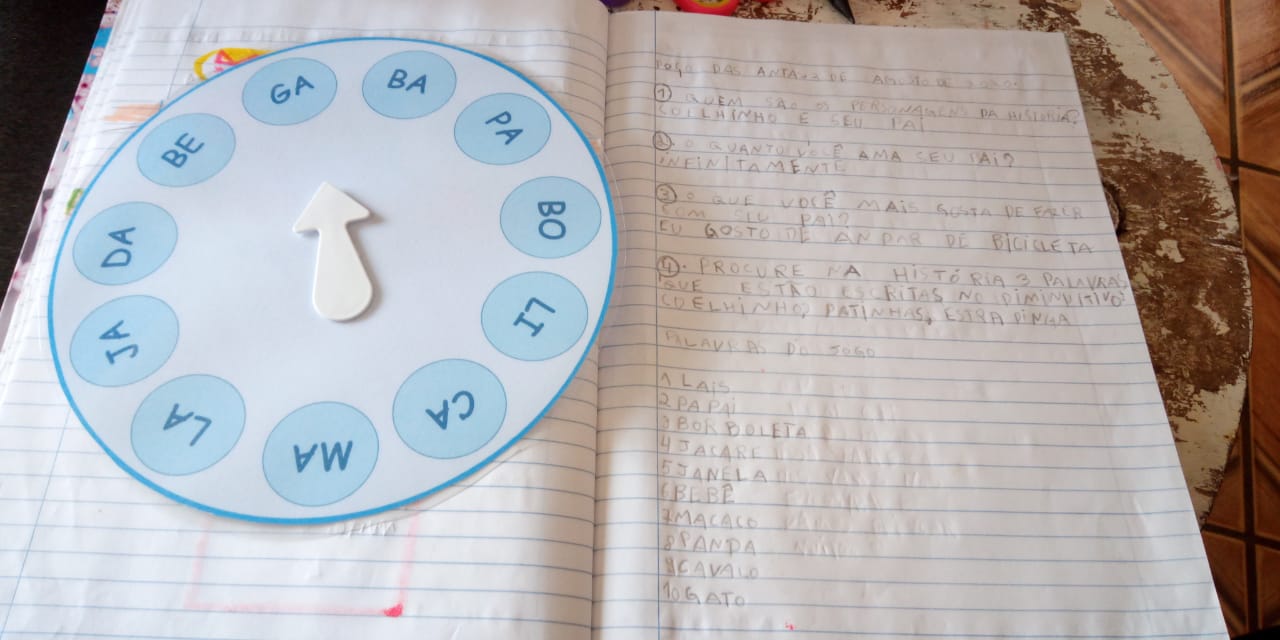 GA
BA
PA
BO
LI
CA
MA
LA
JA
DA
BE
POÇO DAS ANTAS 3 DE AGOSTO DE
1 QUEM SÃO OS PERSONAGENS DA HISTORIA?
COELHINHO E SEU PAI
2. O QUANTO VOCÊ AMA SEU PAI?
INFINITAMENTE
3 O QUE VOCÊ MAIS GOSTA DE FAZER
COM SEU PAI?
EU GOSTO DE ANDAR DE BICICLETA
4. PROCURE NA HISTÓRIA 3 PALAVRAS
QUE ESTÃO ESCRITAS NO DIMINUITIVO
COELHINHO, PATINHAS,
PALAVRAS DO JOGO
1 LAIS
2 PAPAI
3 BORBOLETA
4 JACARE
5 JANELA
6 BEBÊ
7 MACACO
8 PANDA
9 CAVALO
10 GATO